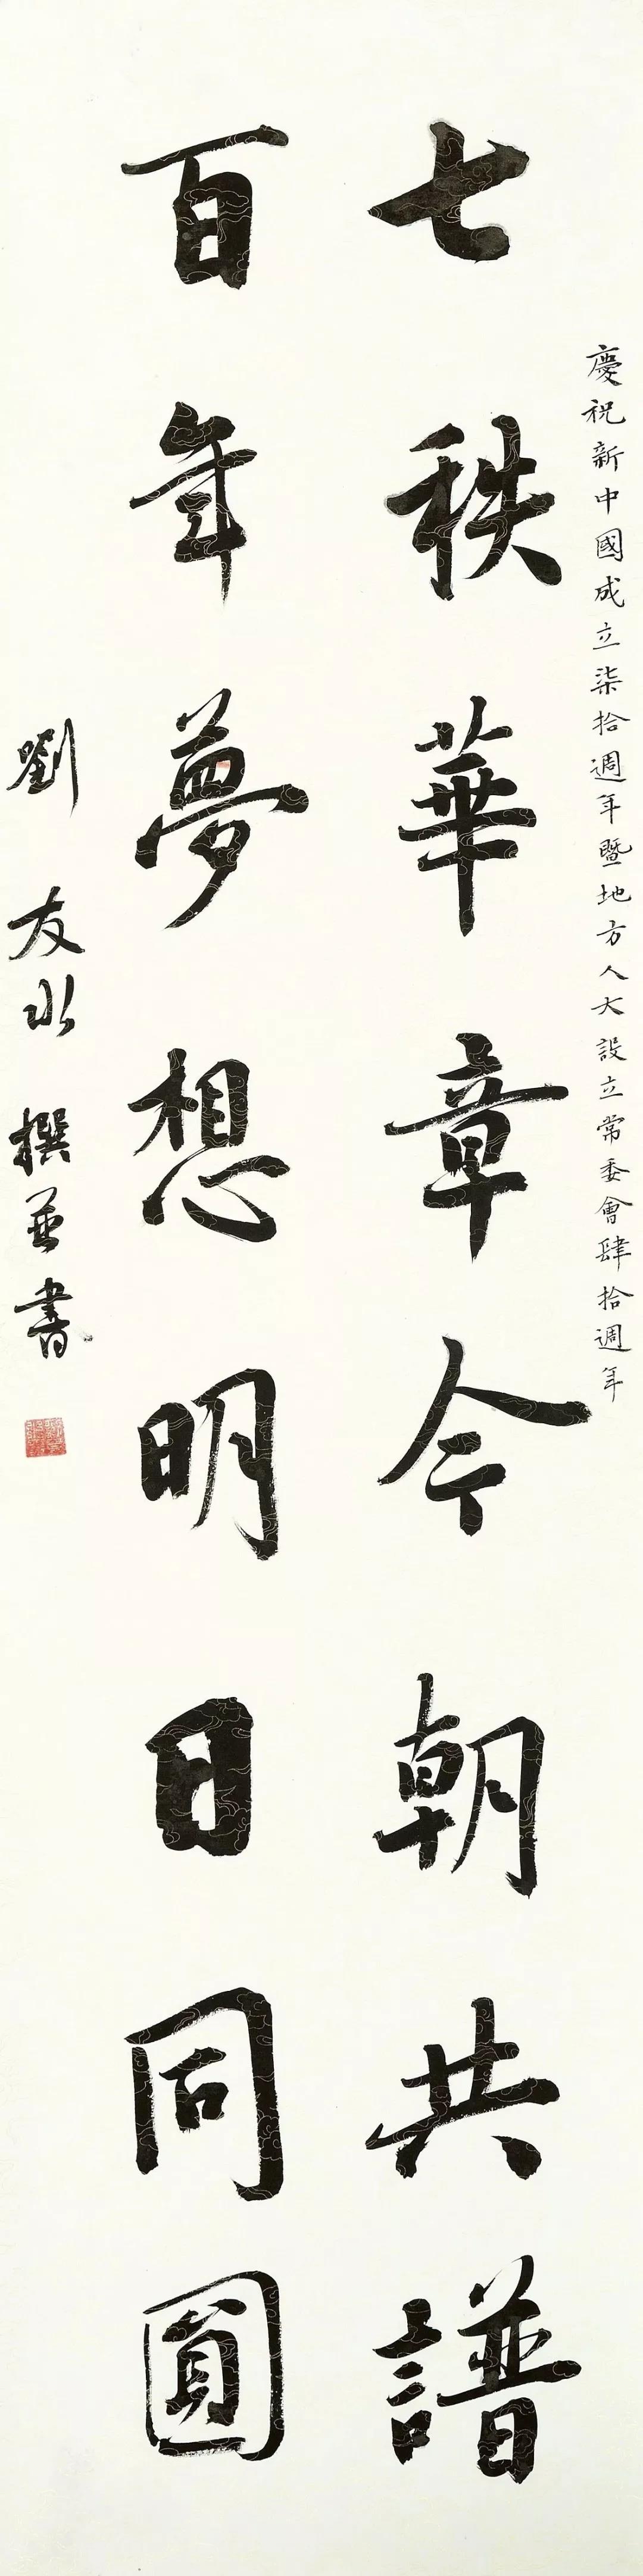 慶祝新中國成立柒拾週年暨地方人大設立常委會肆拾週年
七秩華章今朝共譜
百年夢想明日同圓
劉友水撰並書